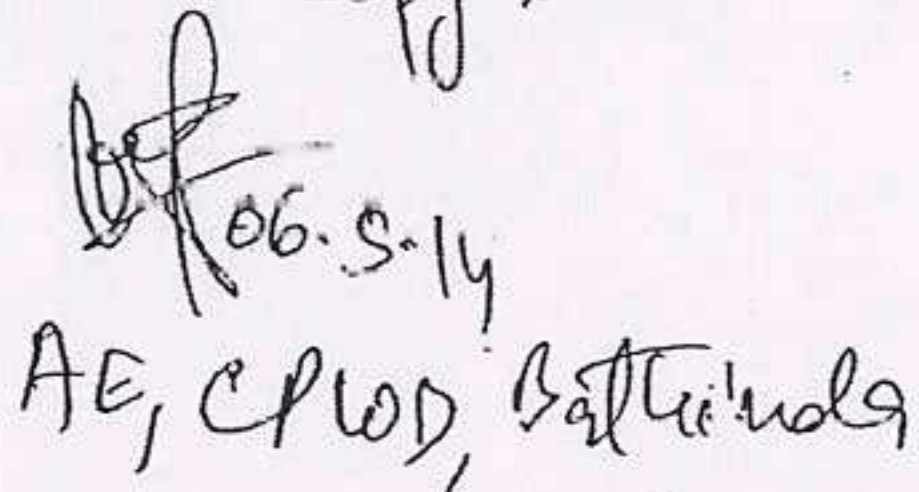 06.5.14
AE, CPWD, Bathinda